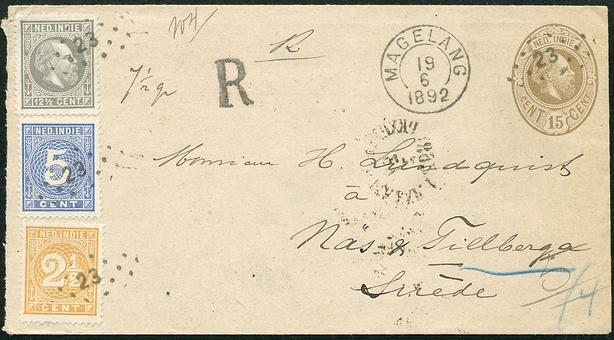 NED.INDIE
12½ CENT.
23
NED.INDIE
5
CENT
23
NED.INDIE
2½
CENT
23
R
R
MAGELANG
19
6
1892
NED. INDIE
23
CENT 15 CENT
Monsieur H. Lundquist
à
Näs & Tillberga
Suède